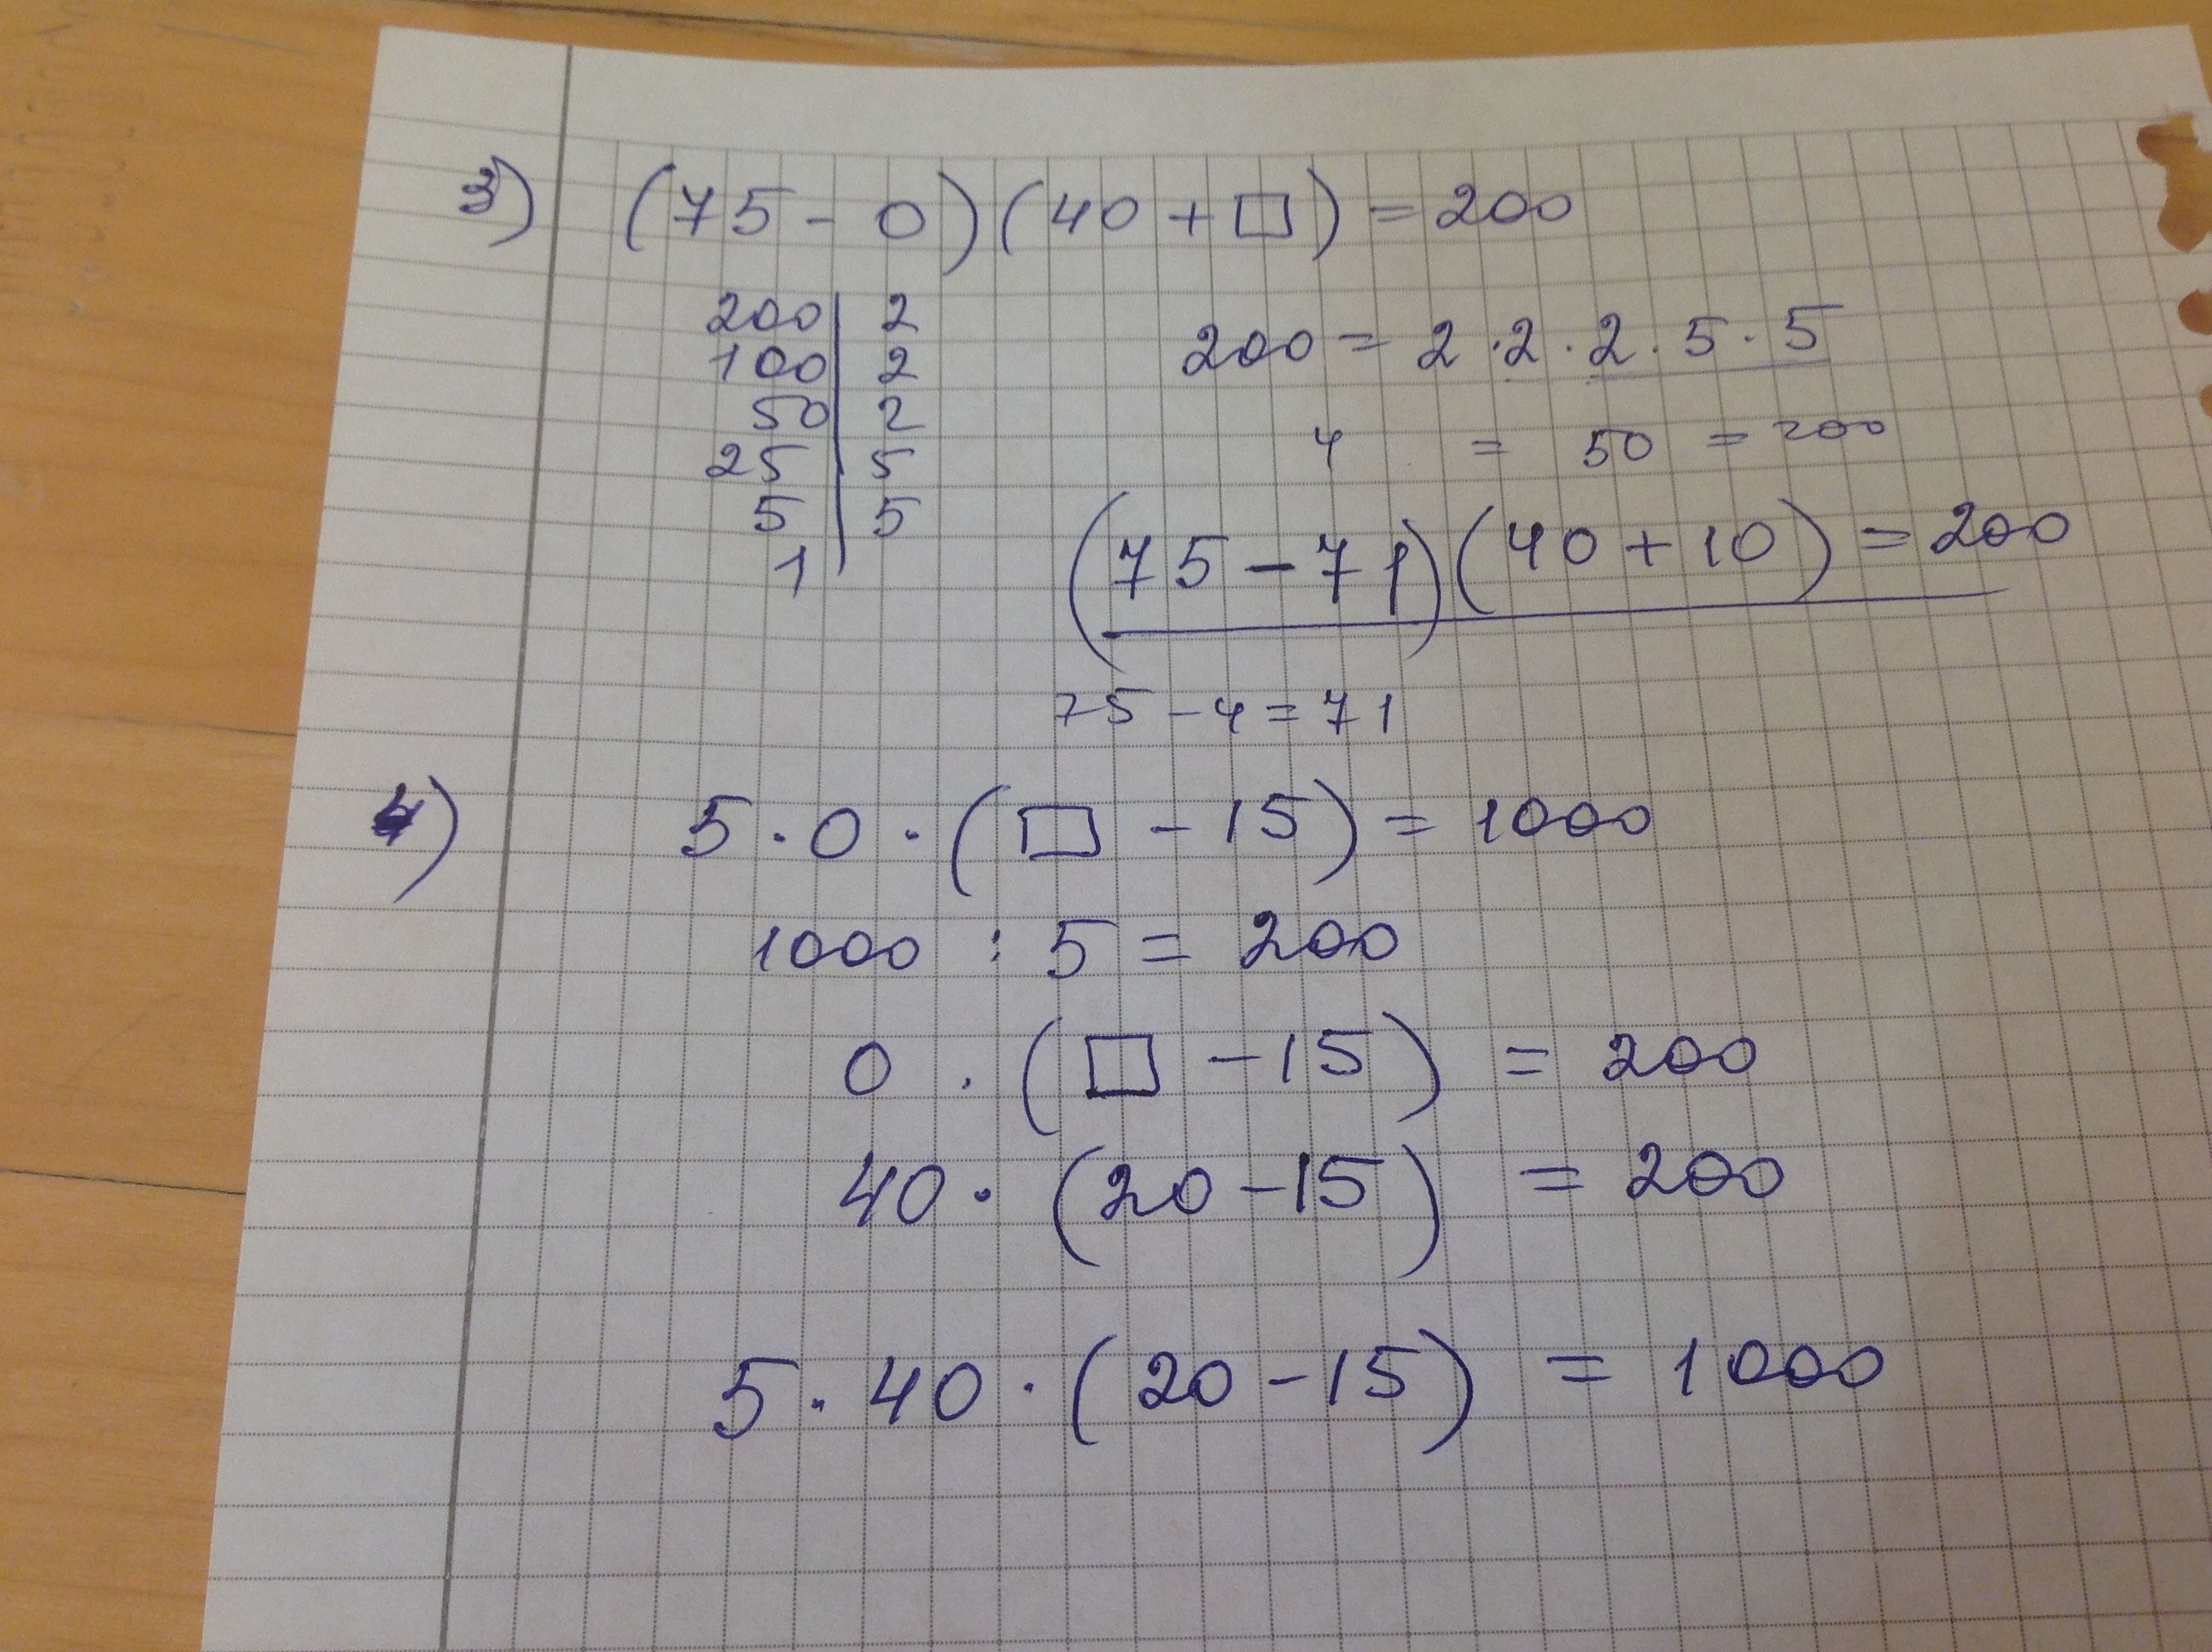 3) (75 - 0) (40 + □) = 200
200 | 2
100 | 2
50 | 2
25 | 5
5 | 5
1
200 = 2 · 2 · 2 · 5 · 5
4 = 50 = 200
(75 - 71) (40 + 10) = 200
75 - 4 = 71
4) 5 · 0 · (□ - 15) = 1000
1000 : 5 = 200
0 · (□ - 15) = 200
40 · (20 - 15) = 200
5 · 40 · (20 - 15) = 1000